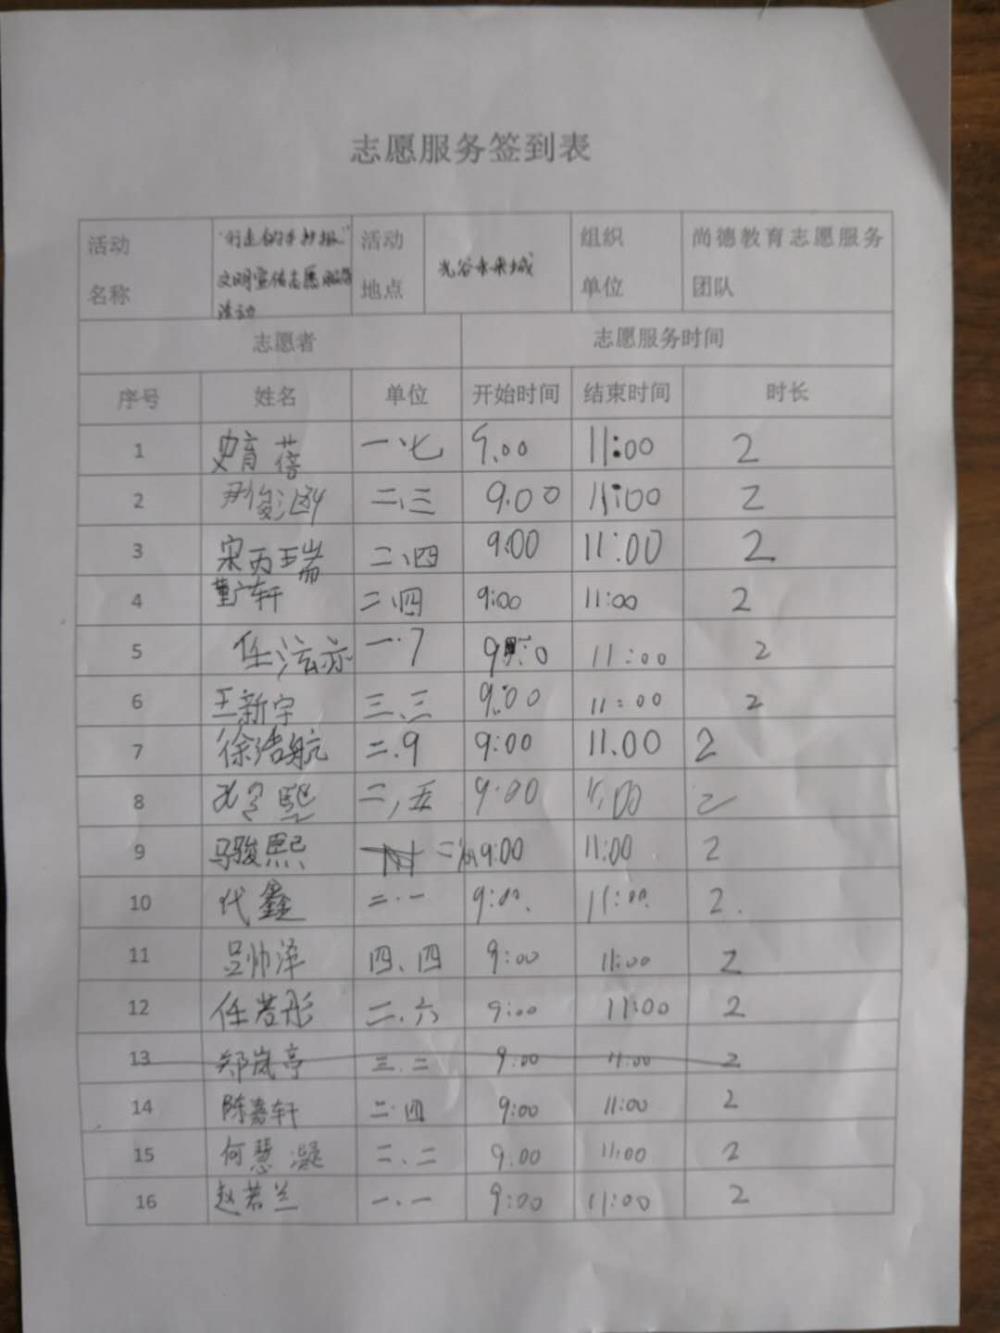 志愿服务签到表
活动名称 "行走的手抄报"文明宣传志愿服务活动 活动地点 光谷未来城 组织单位 尚德教育志愿服务团队
志愿者 志愿服务时间
序号 姓名 单位 开始时间 结束时间 时长
1 史育蓓 一、七 9.00 11:00 2
2 尹俊 二、三 9.00 11:00 2
3 宋丙瑞 二、四 9:00 11:00 2
4 董广轩 二.四 9:00 11:00 2
5 任浤亦 一.7 9 :0 11:00 2
6 王新宇 三、三 9:00 11:00 2
7 徐浩航 二.9 9:00 11.00 2
8 熙 二,五 9:00 11,00 2
9 马骏熙 二 9:00 11:00 2
10 代鑫 二.一 9:00. 11:00. 2.
11 吕帅泽 四、四 9:00 11:00 2
12 任若彤 二.六 9:00 11:00 2
13 郑岚亭 三.二 9:00 11:00 2
14 陈嘉轩 二.四 9:00 11:00 2
15 何慧凝 二、二 9.00 11:00 2
16 赵若兰 一.一 9:00 11:00 2